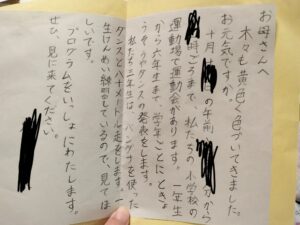 お母さんへ
木々も黄色く色づいてきました。
お元気ですか。
十月 日の午前 分から
時ごろまで、私たちの小学校の
運動場で運動会があります。一年生
から六年生まで、学年ごとにときょ
うそうやダンスの発表をします。
私たち三年生は、バンダナを使った
ダンスと八十メートル走をします。一
生けんめい練習しているので、見てほ
しいです。
プログラムをいっしょにわたします。
ぜひ、見に来てください。